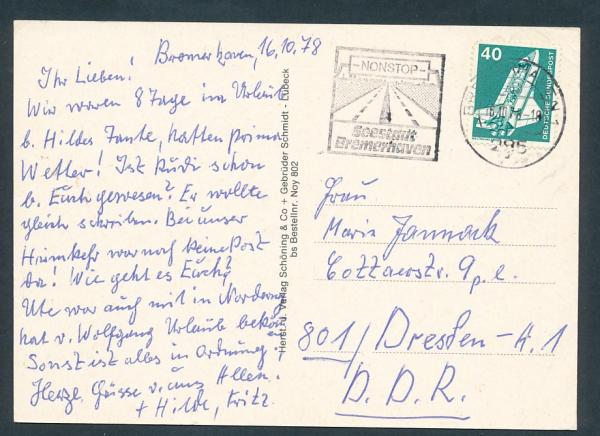 Bremerhaven, 16.10.78
Ihr Lieben!
Wir waren 8 Tage im Urlaub
b. Hildes Tante, hatten prima
Wetter! Ist Rudi schon
b. Euch gewesen? Er wollte
gleich schreiben. Bei unser
Heimkehr war noch keine Post
da! Wie geht es Euch?
Ute war auch mit in Norderney
hat v. Wolfgang Urlaub bekom
en
Sonst ist alles in Ordnung!
Herzl. Grüsse v. uns Allen.
+ Hilde, Fritz.
Herst. u. Verlag Schöning & Co + Gebrüder Schmidt - Lübeck
bs Bestellnr. Noy 802
NONSTOP
Seestadt
Bremerhaven
40
DEUTSCHE BUNDESPOST
16.10.78
285
Frau
Maria Jannack
Cottaerstr. 9 p. l.
801/ Dresden-A. 1
D. D. R.